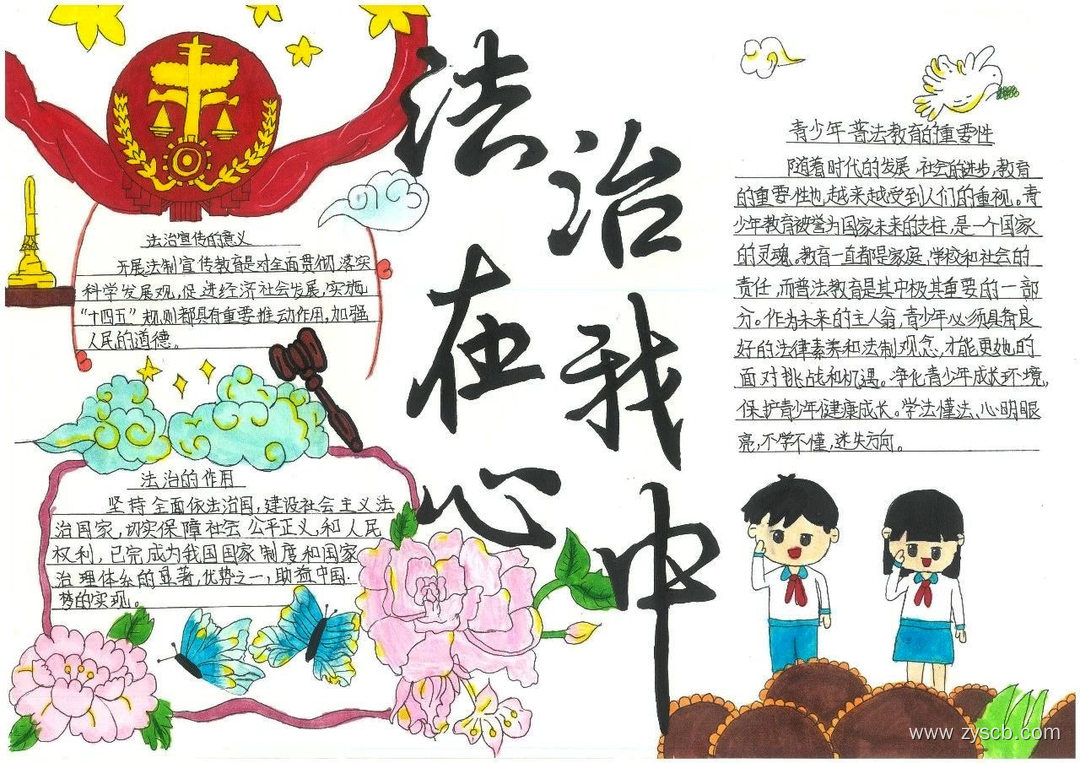 法治在我心中
法治宣传的意义
开展法制宣传教育是对全面贯彻落实
科学发展观,促进经济社会发展,实施
“十四五”规则都具有重要推动作用,加强
人民的道德。
法治的作用
坚持全面依法治国,建设社会主义法
治国家,切实保障社会公平正义,和人民
权利,已完成为我国国家制度和国家
治理体系的显著优势之一,助益中国
梦的实现。
青少年普法教育的重要性
随着时代的发展,社会的进步,教育
的重要性也越来越受到人们的重视。青
少年教育被誉为国家未来的支柱,是一个国家
的灵魂。教育一直都是家庭,学校和社会的
责任,而普法教育是其中极其重要的一部
分。作为未来的主人翁,青少年必须具备良
好的法律素养和法制观念,才能更她的
面对挑战和机遇。净化青少年成长环境,
保护青少年健康成长。学法懂法、心明眼
亮,不学不懂,迷失方向。
www.zyscb.com